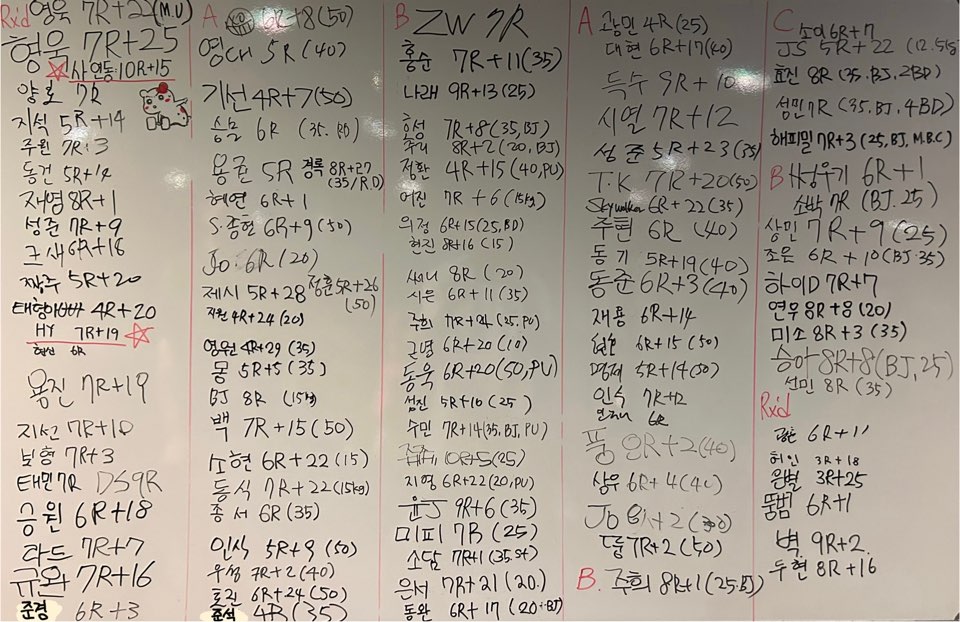 Rx'd 영욱 7R+22 (M.U)
형욱 7R+25
사연동:10R+15
양호 7R
지석 5R+14
주원 7R+3
동건 5R+14
재영 8R+1
성준 7R+9
크새 6R+16
짱주 5R+20
태형 4R+20
HY 7R+19
6R
용진 7R+19
지선 7R+10
보형 7R+3
태민 7R DS 9R
승원 6R+18
라드 7R+7
규완 7R+16
준경 6R+3
A 6R+8(50)
영대 5R (40)
기선 4R+7(50)
승모 6R (35.BD)
용훈 5R 경록 8R+27
(35/R.D)
혜연 6R+1
S.종현 6R+9 (50)
Jo. 6R (20)
제시 5R+28 정훈 5R+26
(50)
지원 4R+24 (20)
영원 4R+29 (35)
몽 5R+5 (35)
BJ 8R (15kg)
백 7R+15 (50)
소현 6R+22 (15)
동식 7R+22 (15kg)
종서 6R (35)
인식 5R+9 (50)
우섭 7R+2 (40)
효진 6R+24 (50)
준석 4R (35)
B ZW 7R
홍순 7R+11(35)
나래 9R+13 (25)
호성 7R+8 (35,BJ)
주니 8R+2 (20,BJ)
정환 4R+15 (40,PU)
어진 7R+6 (15kg)
의정 6R+15(25,BD)
현진 8R+16 (15)
써니 8R (20)
시은 6R+11 (35)
주희 7R+24 (25.PU)
근영 6R+20 (10)
동욱 6R+20(50,PU)
섬진 5R+10 (25)
수민 7R+14(35,BJ,PU)
10R+5(25)
지영 6R+22(20,PU)
윤J 9R+6 (35)
미피 7R (25)
소담 7R+1 (35.St)
은서 7R+21 (20.)
동완 6R+17 (20.BJ)
A 광민 4R (25)
대현 6R+17(40)
득수 9R+10
시열 7R+12
성준 5R+23 (35)
T.K 7R+20(50)
Skywalker 6R+22 (35)
주현 6R (40)
동기 5R+19 (40)
동준 6R+3 (40)
재용 6R+14
6R+15 (50)
명제 5R+14(50)
인식 7R+2
6R
풍 8R+2 (40)
삼우 6R+4 (40)
Jo 6R+2 (30)
둘 7R+2 (50)
B. 주희 8R+1 (25.BJ)
C 소이 6R+7
JS 5R+22 (12.5kg
효진 8R (35.BJ,2BD)
성민 7R (35,BJ,4BD)
해피밀 7R+3 (25,BJ,M.B.C)
B 6R+1
소박 7R (BJ.25)
상민 7R+9 (25)
조은 6R+10 (BJ.35)
하이D 7R+7
연무 8R+8 (20)
미소 8R+3 (35)
승아 8R+8 (BJ,25)
선민 8R (35)
Rx'd
6R+11
허인 3R+18
은별 3R+25
뚱범 6R+1
벽 9R+2.
두현 8R+16